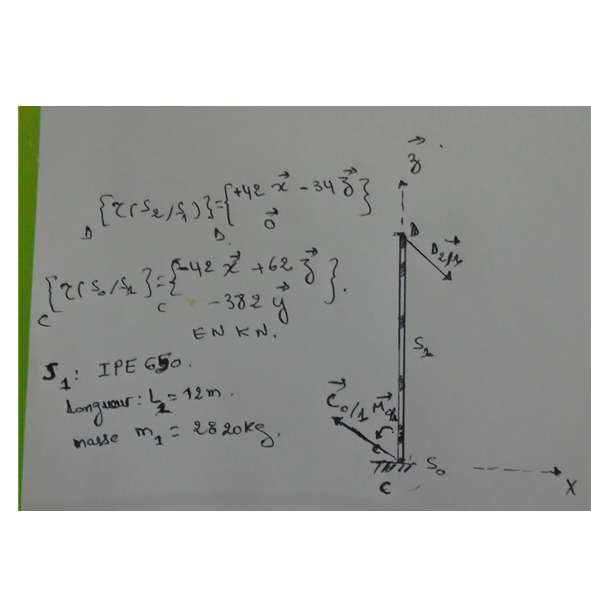 D{τ(S₂/S₁)}={+42 x⃗ - 34 z⃗
0⃗}D
C{τ(S₀/S₁)}={-42 x⃗ + 62 z⃗
-382 y⃗}C.
EN KN.
S₁: IPE 650.
Longueur: L₂ = 12m.
masse m₁ = 2820kg.
z⃗
D
D⃗₂/₁
S₁
C⃗₀/₁ M⃗₀/₁
S₀
C
X